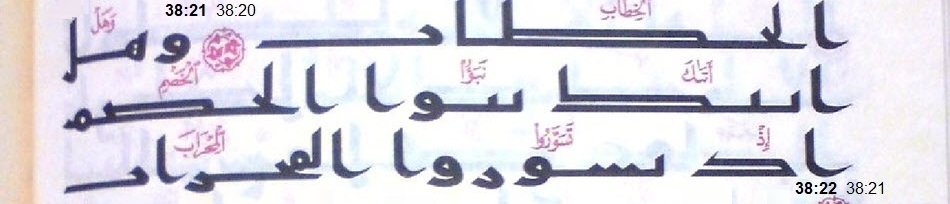 38:21 38:20
ٱلْخِطَابِ وَهَلْ
الحطاب وهل
أَتَىٰكَ نَبَؤُا۟ ٱلْخَصْمِ
اٮىك ٮٮوا الحصم
إِذْ تَسَوَّرُوا۟ ٱلْمِحْرَابَ
اد ٮسوروا المحراٮ
38:22 38:21